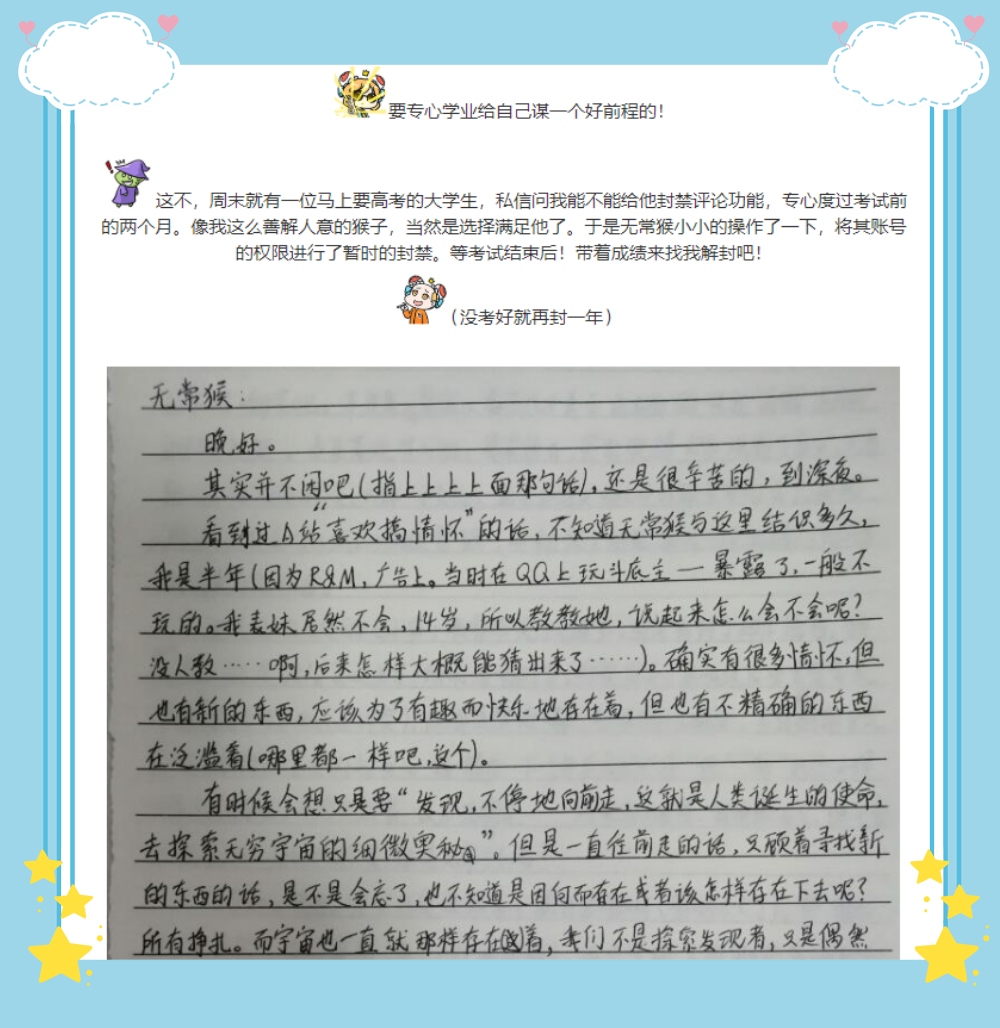 要专心学业给自己谋一个好前程的！
这不，周末就有一位马上要高考的大学生，私信问我能不能给他封禁评论功能，专心度过考试前
的两个月。像我这么善解人意的猴子，当然是选择满足他了。于是无常猴小小的操作了一下，将其账号
的权限进行了暂时的封禁。等考试结束后！带着成绩来找我解封吧！
（没考好就再封一年）
无常猴：
晚好。
其实并不闲吧(指上上上上面那句话)，还是很辛苦的，到深夜。
看到过A站“喜欢搞情怀”的话，不知道无常猴与这里结识多久，
我是半年(因为R&M，广告上。当时在QQ上玩斗底主—暴露了，一般不
玩的。我表妹居然不会，14岁，所以教教她，说起来怎么会不会呢？
没人教……啊，后来怎样大概能猜出来了……)。确实有很多情怀，但
也有新的东西，应该为了有趣而快乐地存在着，但也有不精确的东西
在泛滥着(哪里都一样吧，这个)。
有时候会想只是要“发现，不停地向前走，这就是人类诞生的使命，
去探索无穷宇宙的细微奥秘”。但是一直往前走的话，只顾着寻找新
的东西的话，是不是会忘了，也不知道是因何而存在或者该怎样存在下去呢？
所有挣扎。而宇宙也一直就那样存在着，我们不是探索发现者，只是偶然